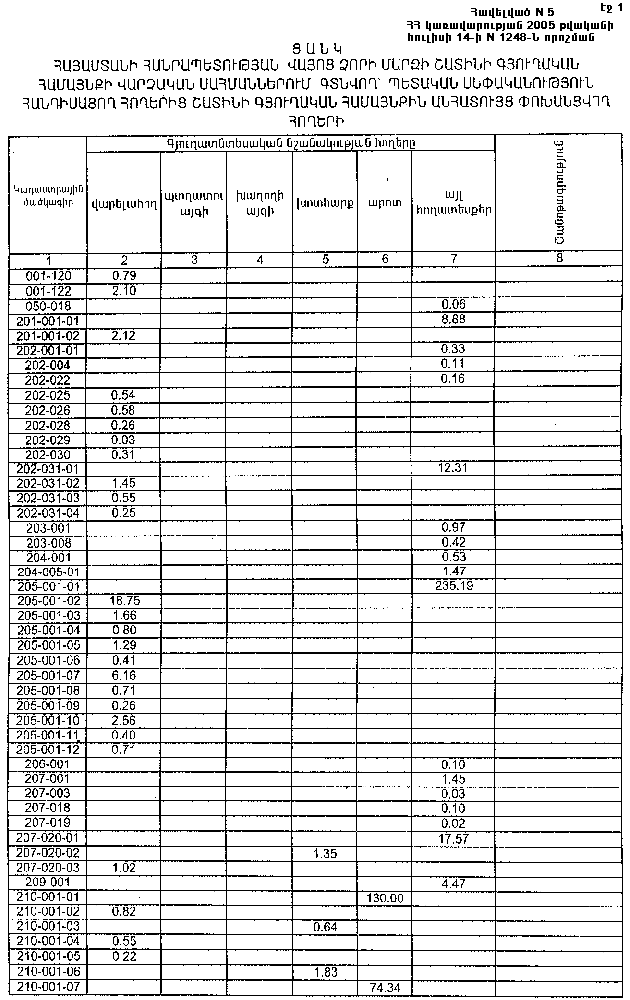 Հավելված N 5 էջ 1
ՀՀ կառավարության 2005 թվականի
հուլիսի 14-ի N 1248-Ն որոշման
Ց Ա Ն Կ
ՀԱՅԱՍՏԱՆԻ ՀԱՆՐԱՊԵՏՈՒԹՅԱՆ ՎԱՅՈՑ ՁՈՐԻ ՄԱՐԶԻ ՇԱՏԻՆԻ ԳՅՈՒՂԱԿԱՆ
ՀԱՄԱՅՆՔԻ ՎԱՐՉԱԿԱՆ ՍԱՀՄԱՆՆԵՐՈՒՄ ԳՏՆՎՈՂ՝ ՊԵՏԱԿԱՆ ՍԵՓԱԿԱՆՈՒԹՅՈՒՆ
ՀԱՆԴԻՍԱՑՈՂ ՀՈՂԵՐԻՑ ՇԱՏԻՆԻ ԳՅՈՒՂԱԿԱՆ ՀԱՄԱՅՆՔԻՆ ԱՆՀԱՏՈՒՅՑ ՓՈԽԱՆՑՎՈՂ
ՀՈՂԵՐԻ
Գյուղատնտեսական նշանակության հողերը
Կադաստրային ծածկագիր վարելահող պտղատու այգի խաղողի այգի խոտհարք արոտ այլ հողատեսքեր Ծանոթագրություն
1 2 3 4 5 6 7 8
001-120 0.79
001-122 2.10
050-018 0.06
201-001-01 8.88
201-001-02 2.12
202-001-01 0.33
202-004 0.11
202-022 0.16
202-025 0.54
202-026 0.58
202-028 0.26
202-029 0.03
202-030 0.31
202-031-01 12.31
202-031-02 1.45
202-031-03 0.55
202-031-04 0.25
203-001 0.97
203-008 0.42
204-001 0.53
204-005-01 1.47
205-001-01 235.19
205-001-02 18.75
205-001-03 1.66
205-001-04 0.80
205-001-05 1.29
205-001-06 0.41
205-001-07 6.16
205-001-08 0.71
205-001-09 0.26
205-001-10 2.56
205-001-11 0.40
205-001-12
206-001 0.10
207-001 1.45
207-003 0.03
207-018 0.10
207-019 0.02
207-020-01 17.57
207-020-02 1.35
207-020-03 1.02
209-001 4.47
210-001-01 130.00
210-001-02 0.82
210-001-03 0.64
210-001-04
210-001-05 0.22
210-001-06 1.83
210-001-07 74.34